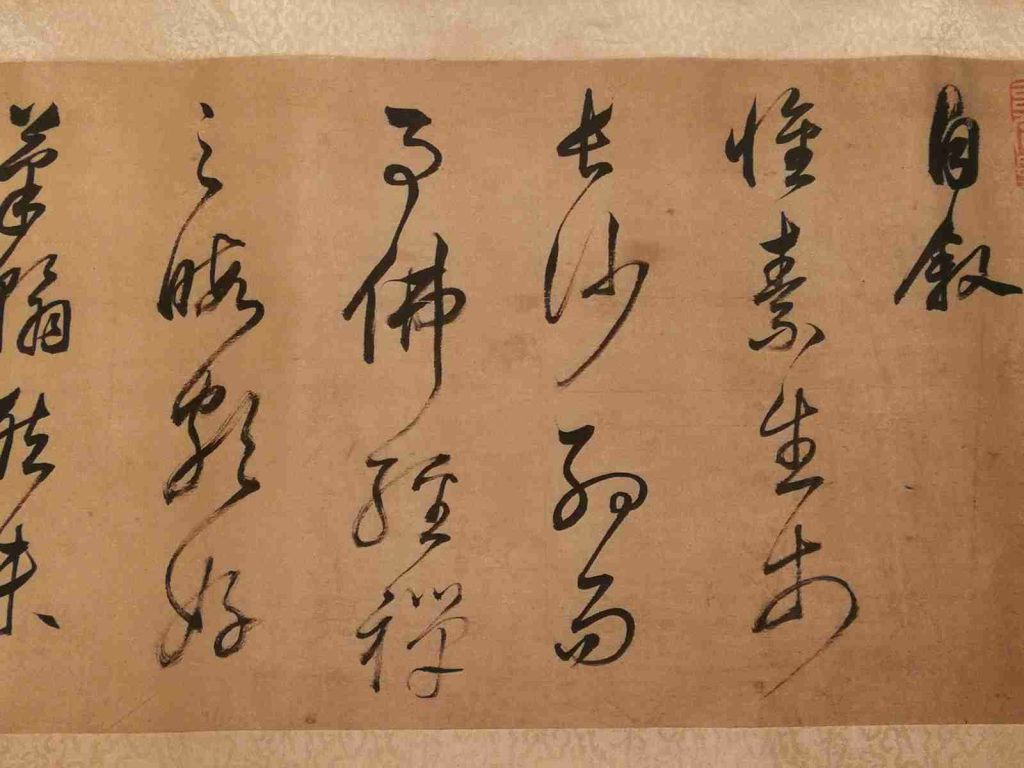 自叙
懷素生於
長沙幼而
事佛經禪
之暇頗好
筆翰然未